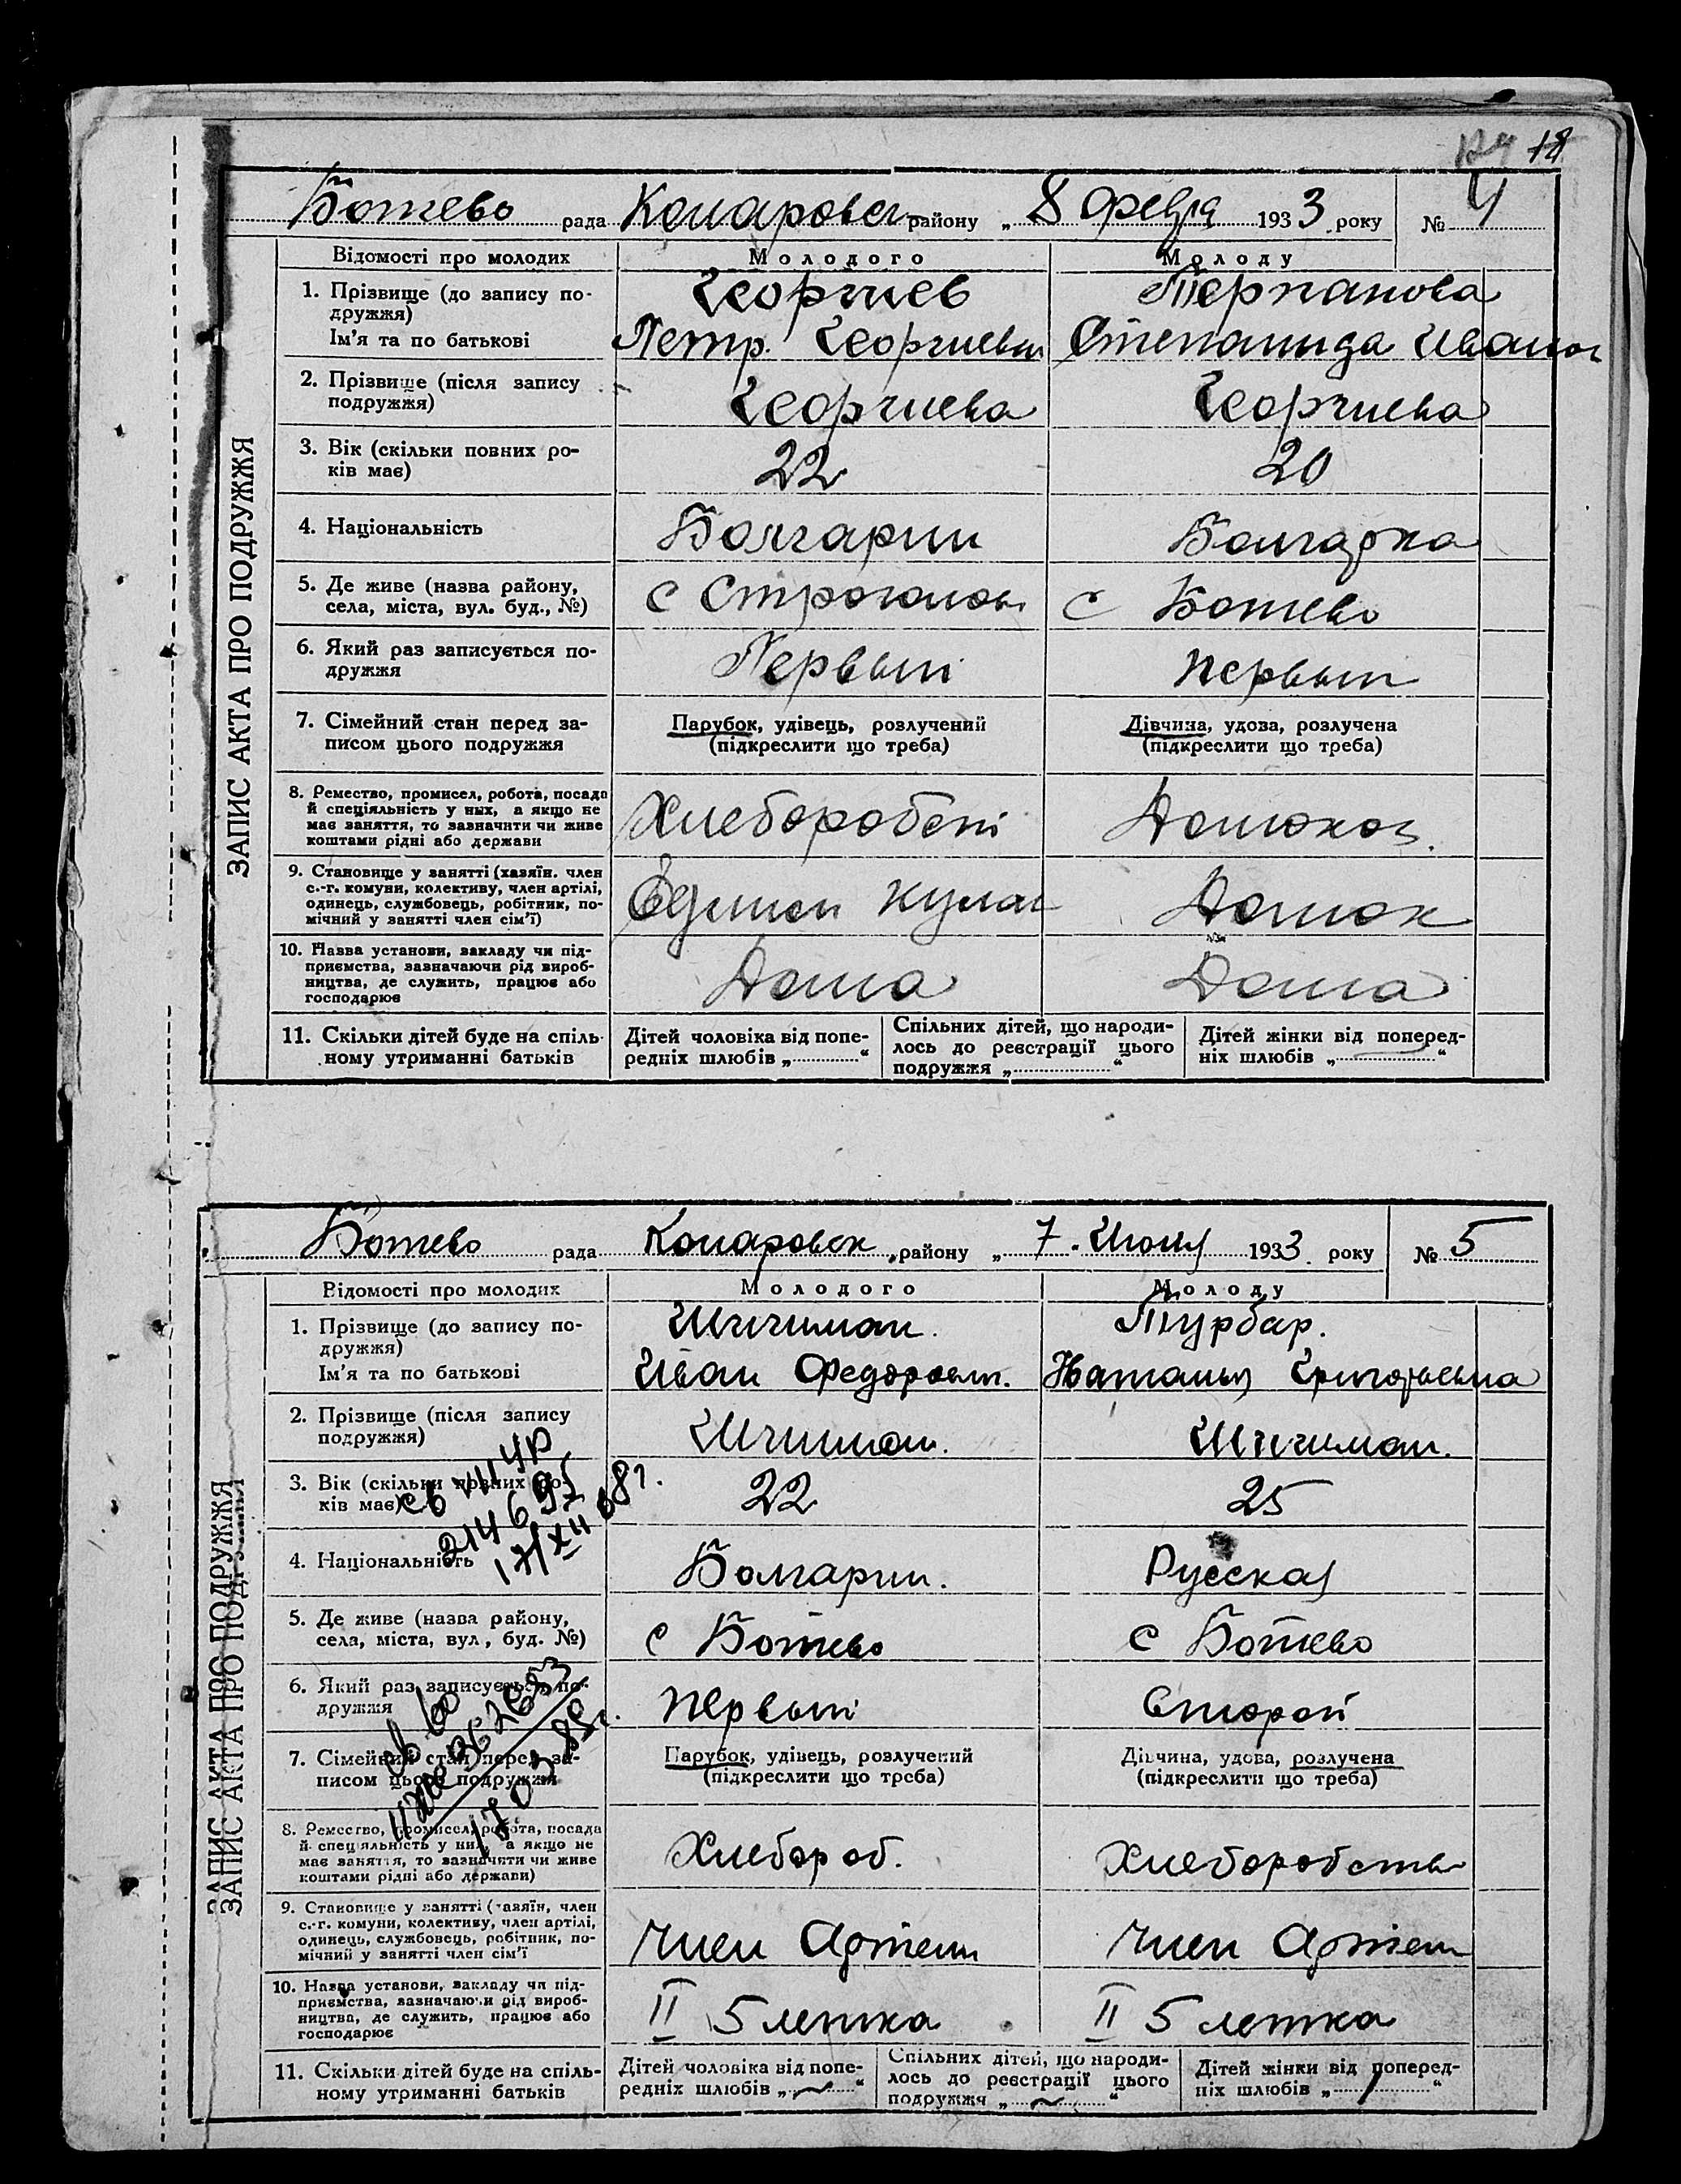 18
Ботево рада Коларовск району „ 8 февля 1933 року № 4
ЗАПИС АКТА ПРО ПОДРУЖЖЯ
Відомості про молодих Молодого Молоду
1. Прізвище (до запису подружжя) Георгиев Терпанова
Ім'я та по батькові Петр. Георгиевич Степанида Иванов
2. Прізвище (після запису подружжя) Георгиева Георгиева
3. Вік (скільки повних років має) 22 20
4. Національність Болгарин Болгарка
5. Де живе (назва району, села, міста, вул. буд., №) с с Ботево
6. Який раз записується подружжя Первый первый
7. Сімейний стан перед записом цього подружжя Парубок, удівець, розлучений (підкреслити що треба) Дівчина, удова, розлучена (підкреслити що треба)
8. Ремество, промисел, робота, посада й спеціяльність у них, а якщо не має заняття, то зазначити чи живе коштами рідні або держави Хлеборобст Домохоз.
9. Становище у занятті (хазяїн. член с.-г. комуни, колективу, член артілі, одинець, службовець, робітник, помічний у занятті член сім'ї) кулак Домох
10. Назва установи, закладу чи підприємства, зазначаючи рід виробництва, де служить, працює або господарює Дома Дома
11. Скільки дітей буде на спільному утриманні батьків Дітей чоловіка від попередніх шлюбів „ “ Спільних дітей, що народилось до реєстрації цього подружжя „ “ Дітей жінки від попередніх шлюбів „ “
Ботево рада Коларовск району „ 7. Июня 1933 року № 5
ЗАПИС АКТА ПРО ПОДРУЖЖЯ
Відомості про молодих Молодого Молоду
1. Прізвище (до запису подружжя) Шишман. Турбар.
Ім'я та по батькові Иван Федорович. Наталья Григорьевна
2. Прізвище (після запису подружжя) Шишман. Шишман.
3. Вік (скільки повних років має) 22 25
4. Національність Болгарин. Русская
5. Де живе (назва району, села, міста, вул, буд. №) с Ботево с Ботево
6. Який раз записується подружжя первый второй
7. Сімейний стан перед записом цього подружжя Парубок, удівець, розлучений (підкреслити що треба) Дівчина, удова, розлучена (підкреслити що треба)
8. Ремество, промисел, робота, посада й спеціяльність у них, а якщо не має заняття, то зазначити чи живе коштами рідні або держави) Хлебороб. Хлеборобств
9. Становище у занятті (хазяїн, член с.-г. комуни, колективу, член артілі, одинець, службовець, робітник, помічний у занятті член сім'ї Член Артели Член Артели
10. Назва установи, закладу чи підприємства, зазначаючи рід виробництва, де служить, працює або господарює II 5 летка II 5 летка
11. Скільки дітей буде на спільному утриманні батьків Дітей чоловіка від попередніх шлюбів „ ~ “ Спільних дітей, що народилось до реєстрації цього подружжя „ ~ “ Дітей жінки від попередніх шлюбів „ “